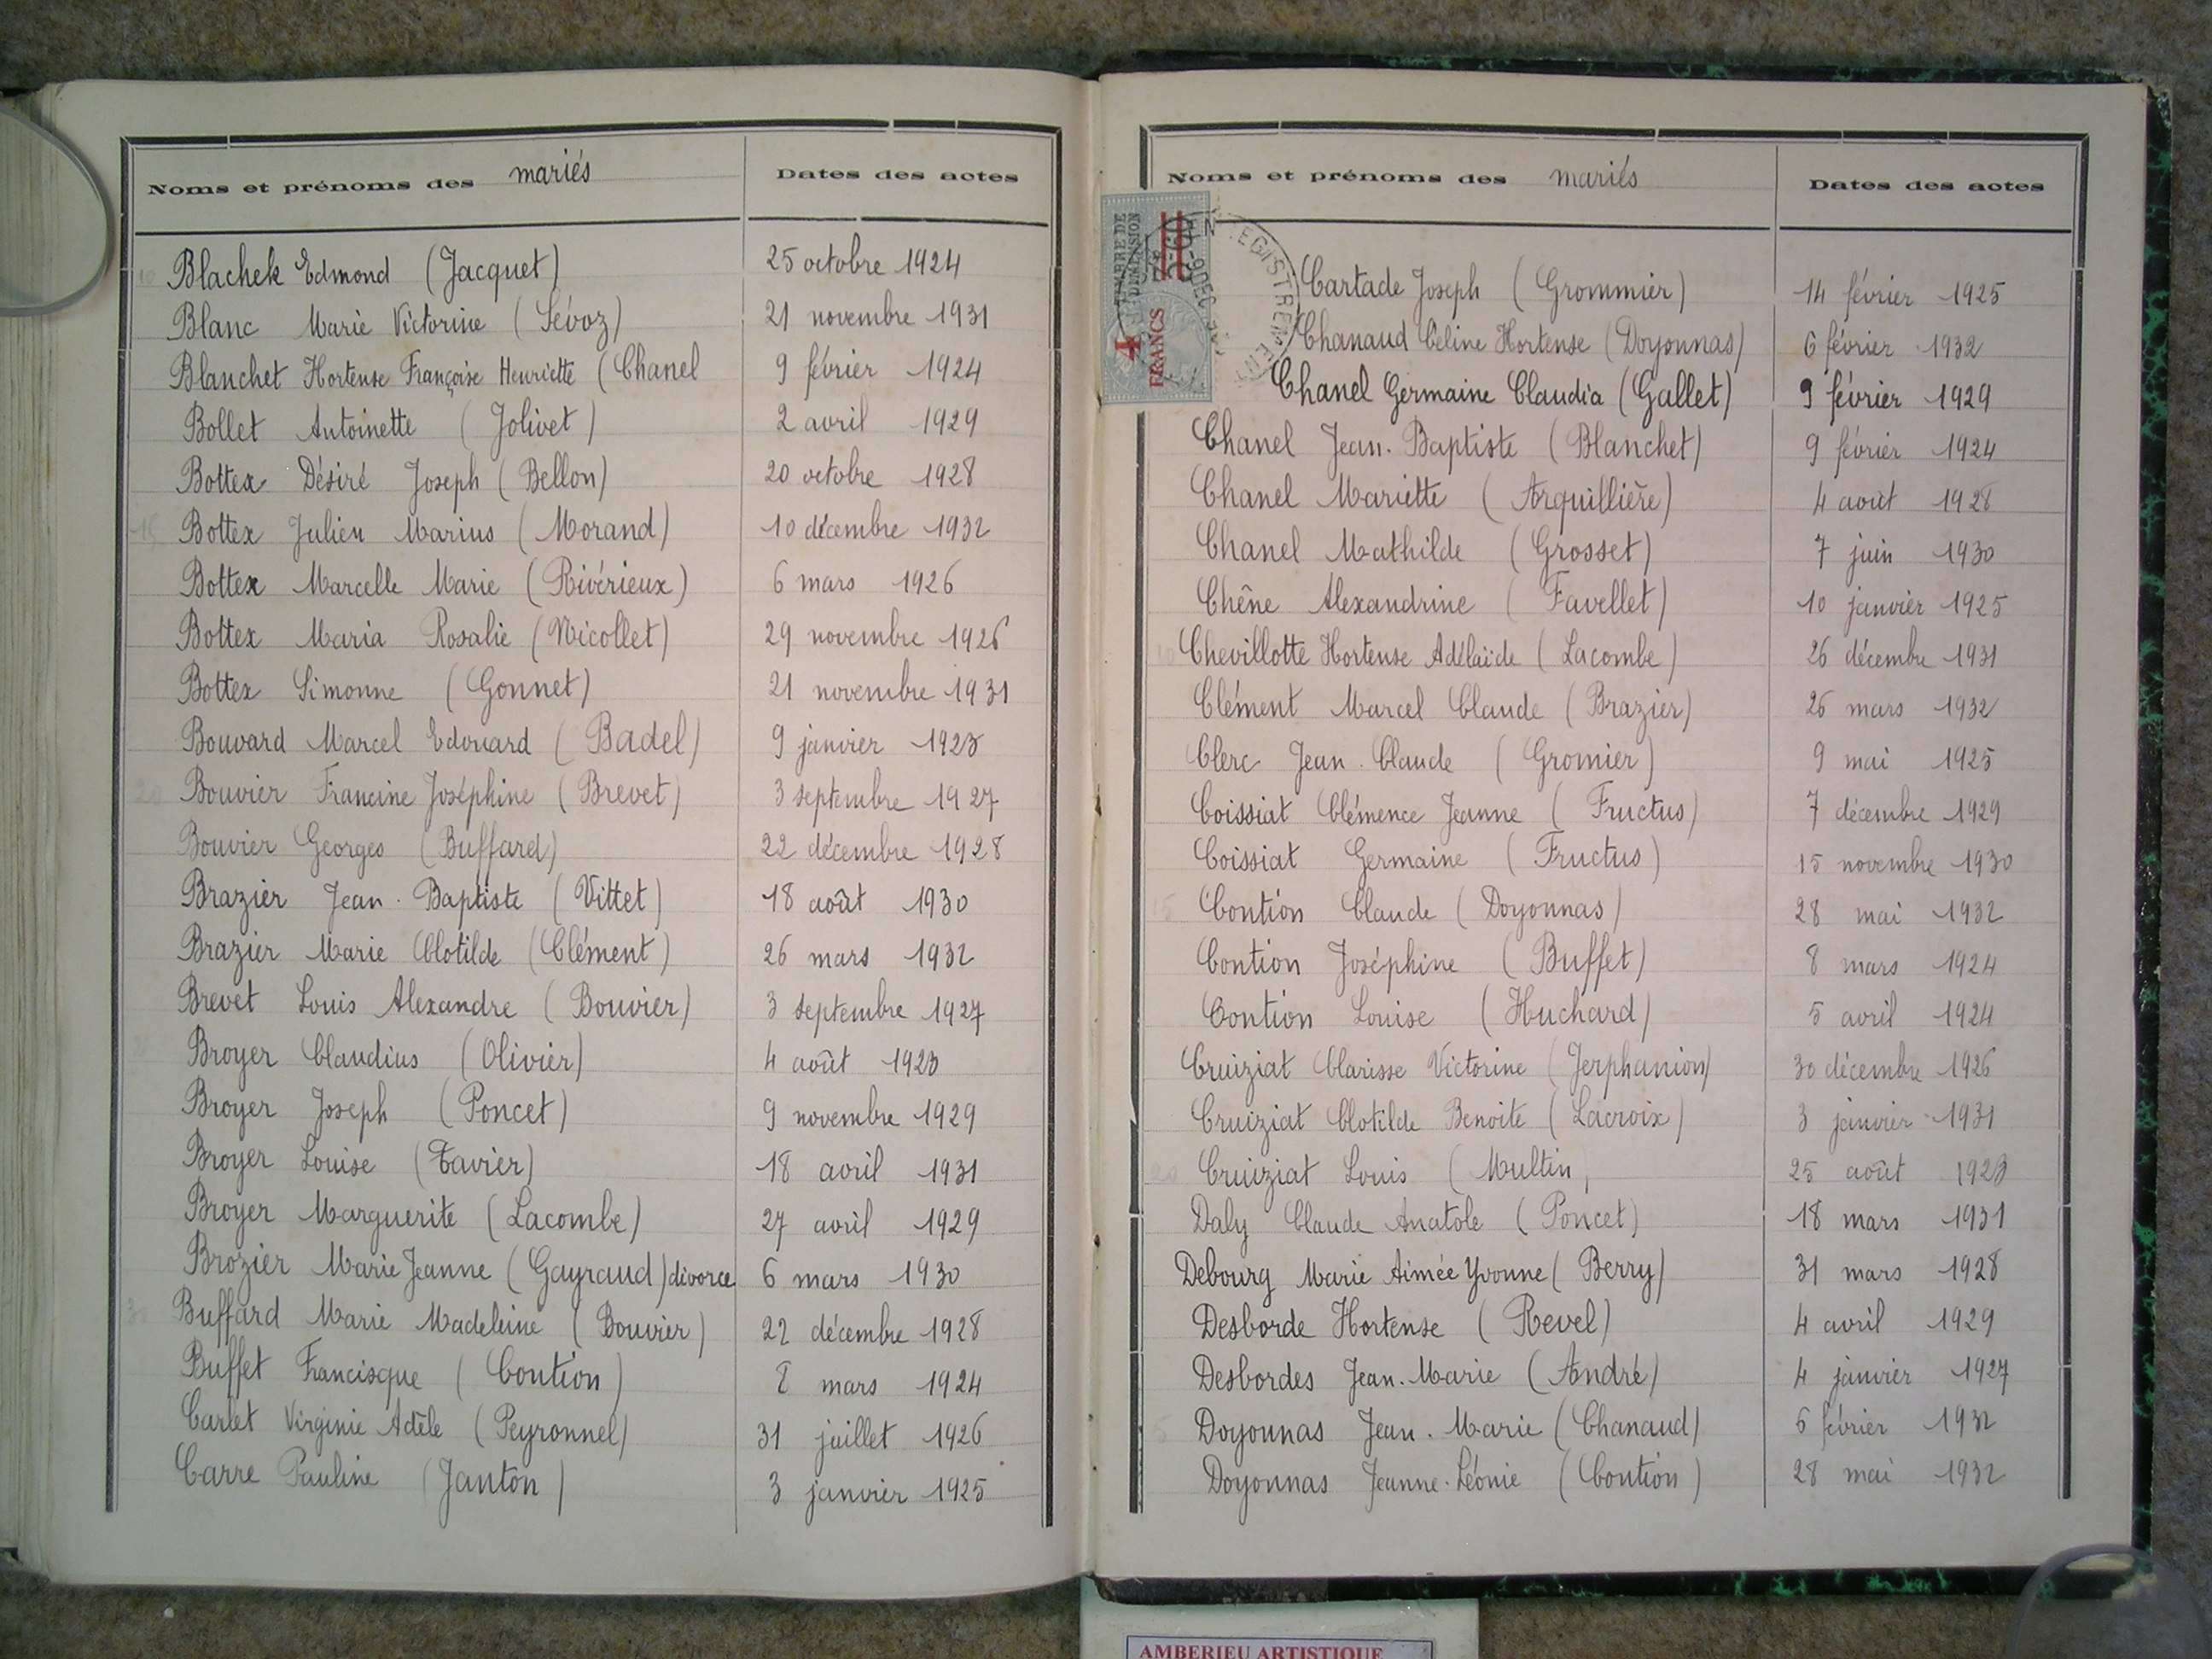 Noms et prénoms des mariés Dates des actes
Blachek Edmond (Jacquet) 25 octobre 1924
Blanc Marie Victorine (Sévoz) 21 novembre 1931
Blanchet Hortense Françoise Henriette (Chanel 9 février 1924
Bollet Antoinette (Jolivet) 2 avril 1929
Bottex Désiré Joseph (Bellon) 20 octobre 1928
Bottex Julien Marius (Morand) 10 décembre 1932
Bottex Marcelle Marie (Rivérieux) 6 mars 1926
Bottex Maria Rosalie (Nicollet) 29 novembre 1926
Bottex Simonne (Gonnet) 21 novembre 1931
Bouvard Marcel Edouard (Badel) 9 janvier 1923
Bouvier Francine Joséphine (Brevet) 3 septembre 1927
Bouvier Georges (Buffard) 22 décembre 1928
Brazier Jean-Baptiste (Vittet) 18 août 1930
Brazier Marie Clotilde (Clément) 26 mars 1932
Brevet Louis Alexandre (Bouvier) 3 septembre 1927
Broyer Claudius (Olivier) 4 août 1923
Broyer Joseph (Poncet) 9 novembre 1929
Broyer Louise (Tavier) 18 avril 1931
Broyer Marguerite (Lacombe) 27 avril 1929
Brozier Marie Jeanne (Gayraud) divorce 6 mars 1930
Buffard Marie Madeleine (Bouvier) 22 décembre 1928
Buffet Francisque (Contion) 8 mars 1924
Carlet Virginie Adèle (Peyronnel) 31 juillet 1926
Carre Pauline (Janton) 3 janvier 1925
Noms et prénoms des mariés Dates des actes
TIMBRE DE
DIMENSION
4
FRANCS
Cartade Joseph (Grommier) 14 février 1925
Chanaud Céline Hortense (Doyonnas) 6 février 1932
Chanel Germaine Claudia (Gallet) 9 février 1929
Chanel Jean-Baptiste (Blanchet) 9 février 1924
Chanel Mariette (Arquillière) 4 août 1928
Chanel Mathilde (Grosset) 7 juin 1930
Chêne Alexandrine (Favellet) 10 janvier 1925
Chevillotte Hortense Adélaïde (Lacombe) 26 décembre 1931
Clément Marcel Claude (Brazier) 26 mars 1932
Clerc Jean-Claude (Gromier) 9 mai 1925
Coissiat Clémence Jeanne (Fructus) 7 décembre 1929
Coissiat Germaine (Fructus) 15 novembre 1930
Contion Claude (Doyonnas) 28 mai 1932
Contion Joséphine (Buffet) 8 mars 1924
Contion Louise (Huchard) 5 avril 1924
Cruiziat Clarisse Victorine (Jerphanion) 30 décembre 1926
Cruiziat Clotilde Benoite (Lacroix) 3 janvier 1931
Cruiziat Louis (Multin) 25 août 1923
Daly Claude Anatole (Poncet) 18 mars 1931
Debourg Marie Aimée Yvonne (Berry) 31 mars 1928
Desborde Hortense (Revel) 4 avril 1929
Desbordes Jean-Marie (André) 4 janvier 1927
Doyonnas Jean-Marie (Chanaud) 6 février 1932
Doyonnas Jeanne-Léonie (Contion) 28 mai 1932
AMBERIEU ARTISTIQUE